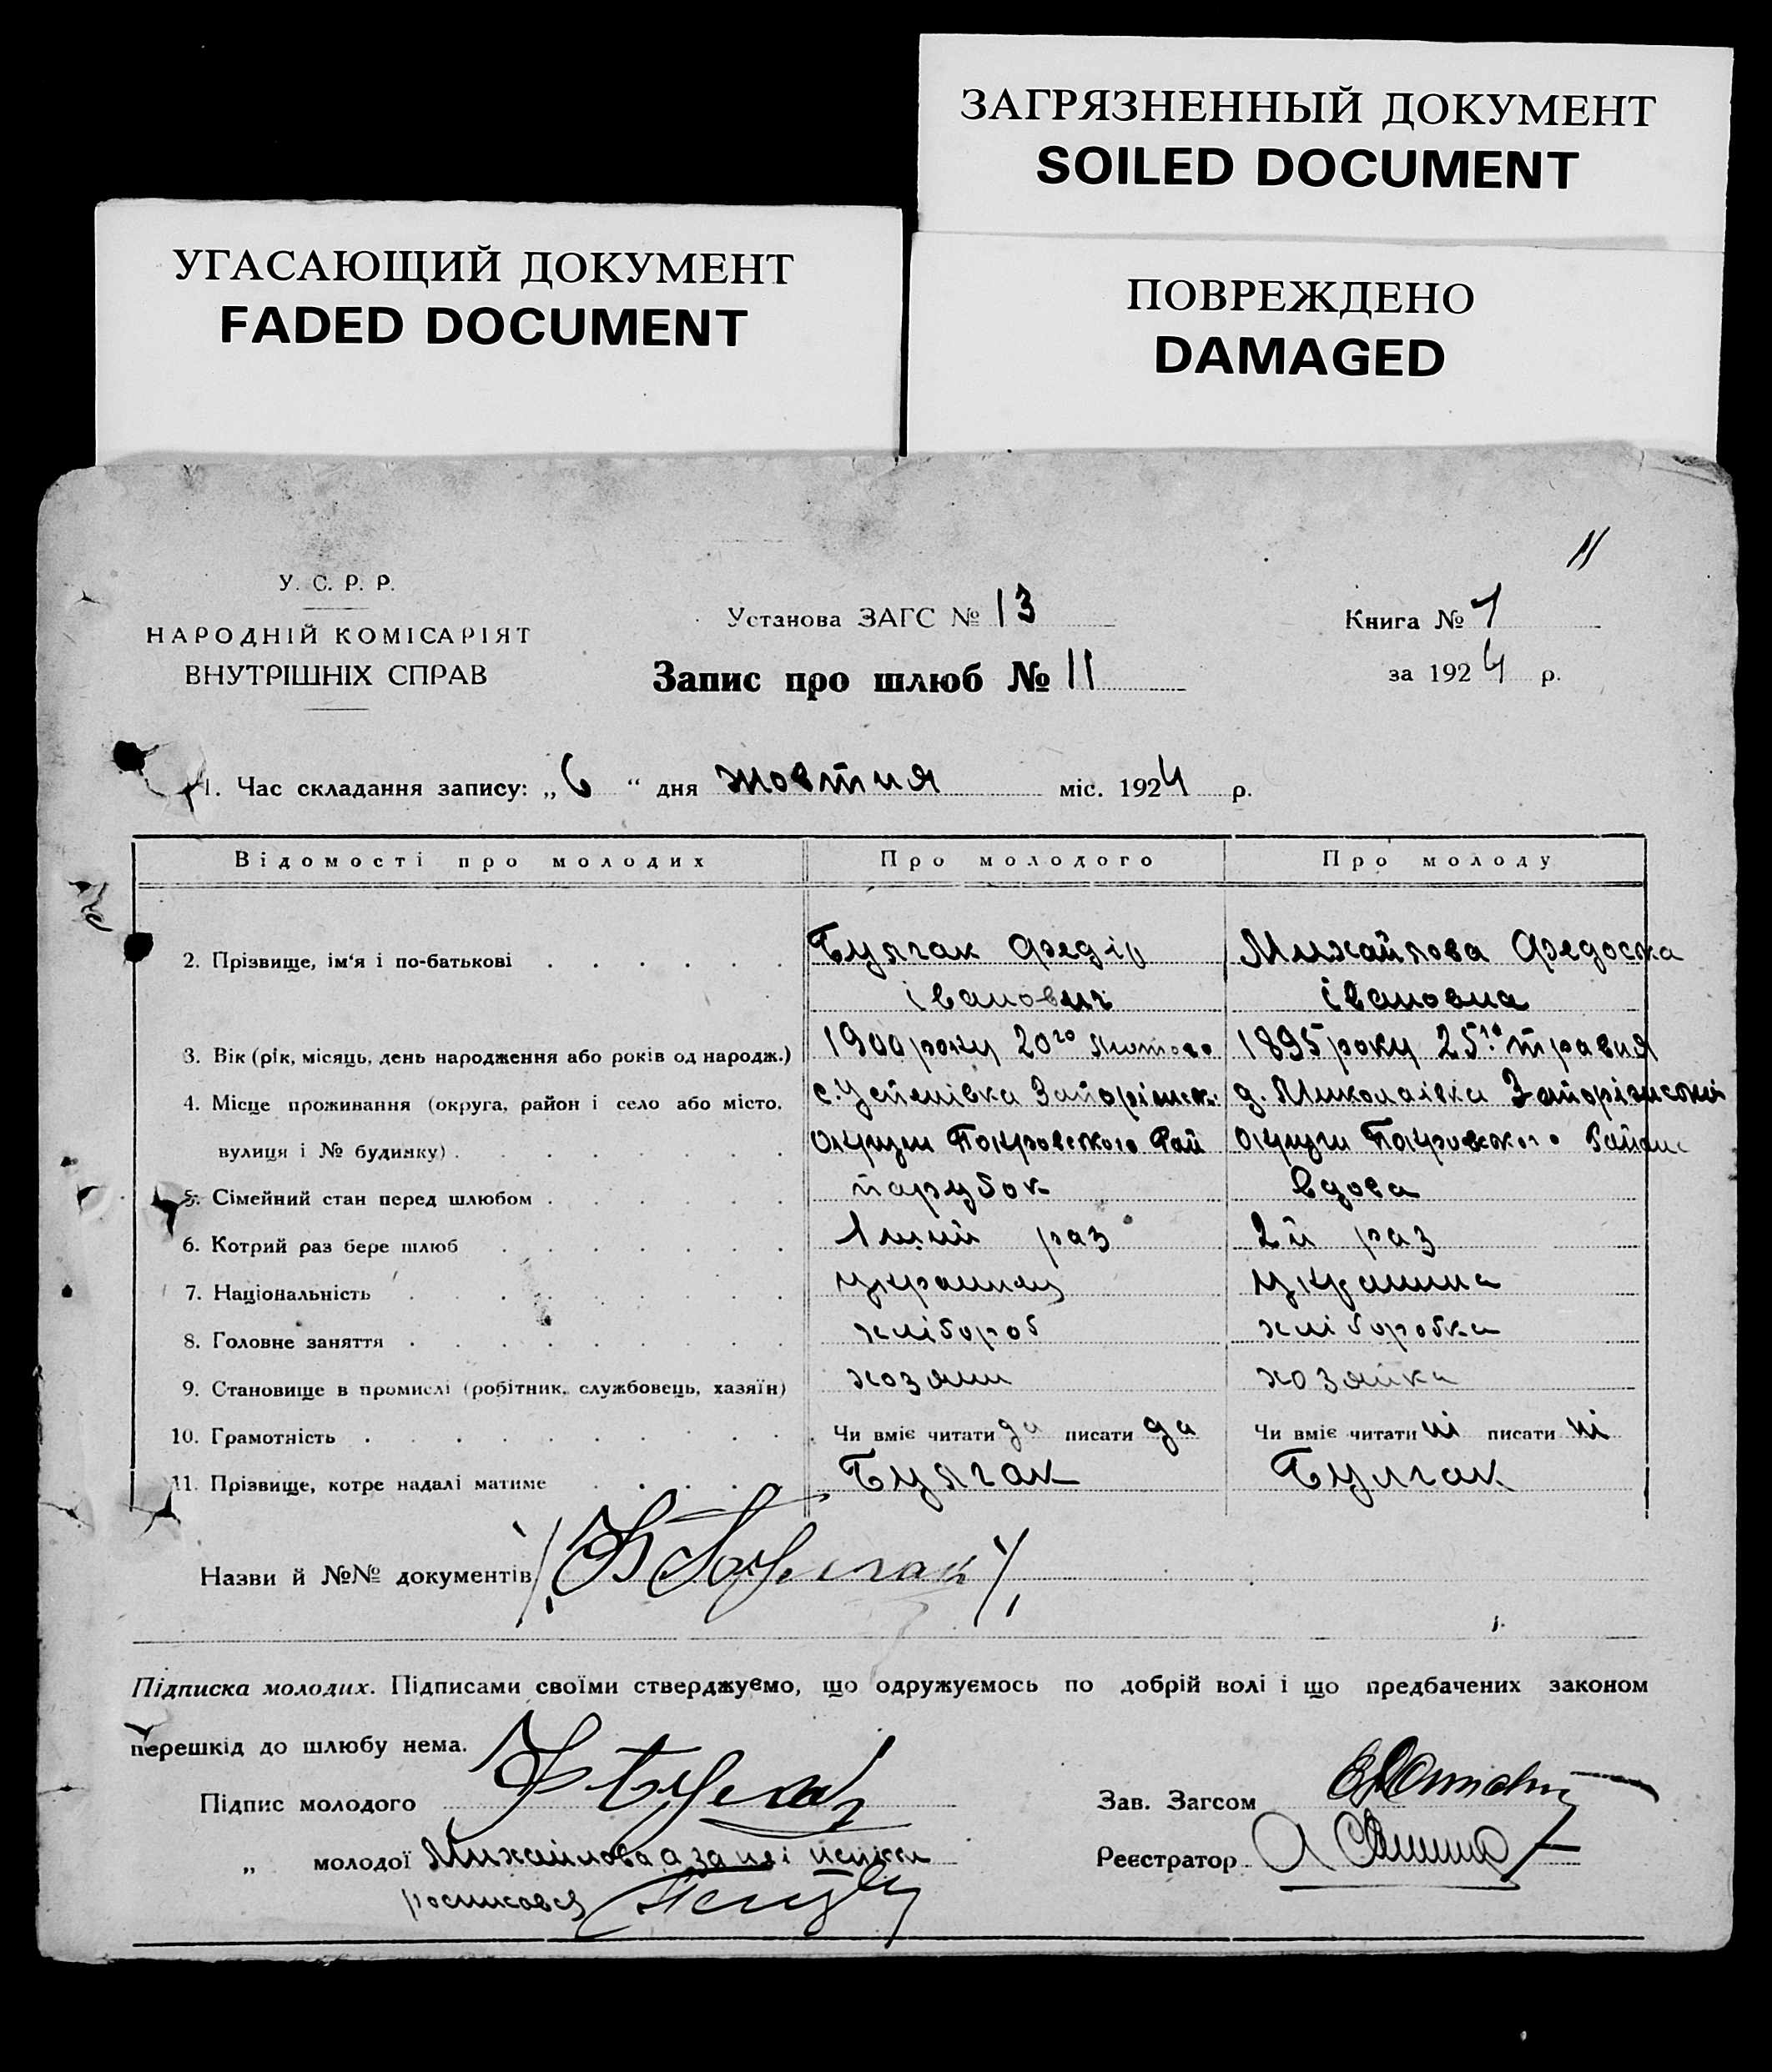 ЗАГРЯЗНЕННЫЙ ДОКУМЕНТ
SOILED DOCUMENT
УГАСАЮЩИЙ ДОКУМЕНТ
FADED DOCUMENT
ПОВРЕЖДЕНО
DAMAGED
11
У. С. Р. Р.
НАРОДНІЙ КОМІСАРІЯТ
ВНУТРІШНІХ СПРАВ
Установа ЗАГС № 13
Книга № 1
Запис про шлюб № 11
за 1924 р.
1. Час складання запису: „6“ дня жовтня міс. 1924 р.
Відомості про молодих Про молодого Про молоду
2. Прізвище, ім'я і по-батькові Булгак Федір Михайлова Федоска
іванович івановна
3. Вік (рік, місяць, день народження або років од народж.) 1900 року 20го лютого 1895 року 25го травня
4. Місце проживання (округа, район і село або місто, с. Успенівка Запоріжск. д. Миколаівка Запоріжської
вулиця і № будинку) Округи Покровського Рай Округи Покровського Району
5. Сімейний стан перед шлюбом парубок вдова
6. Котрий раз бере шлюб 1ший раз 2й раз
7. Національність украинец украинка
8. Головне заняття хлібороб хліборобка
9. Становище в промислі (робітник, службовець, хазяїн) хозяин хозяйка
10. Грамотність Чи вміє читати да писати да Чи вміє читати ні писати ні
11. Прізвище, котре надалі матиме Булгак Булгак
Назви й №№ документів
Підписка молодих. Підписами своїми стверджуємо, що одружуємось по добрій волі і що предбачених законом
перешкід до шлюбу нема.
Підпис молодого
Зав. Загсом
„ молодої Михайлова а за неі
Реєстратор
росписався